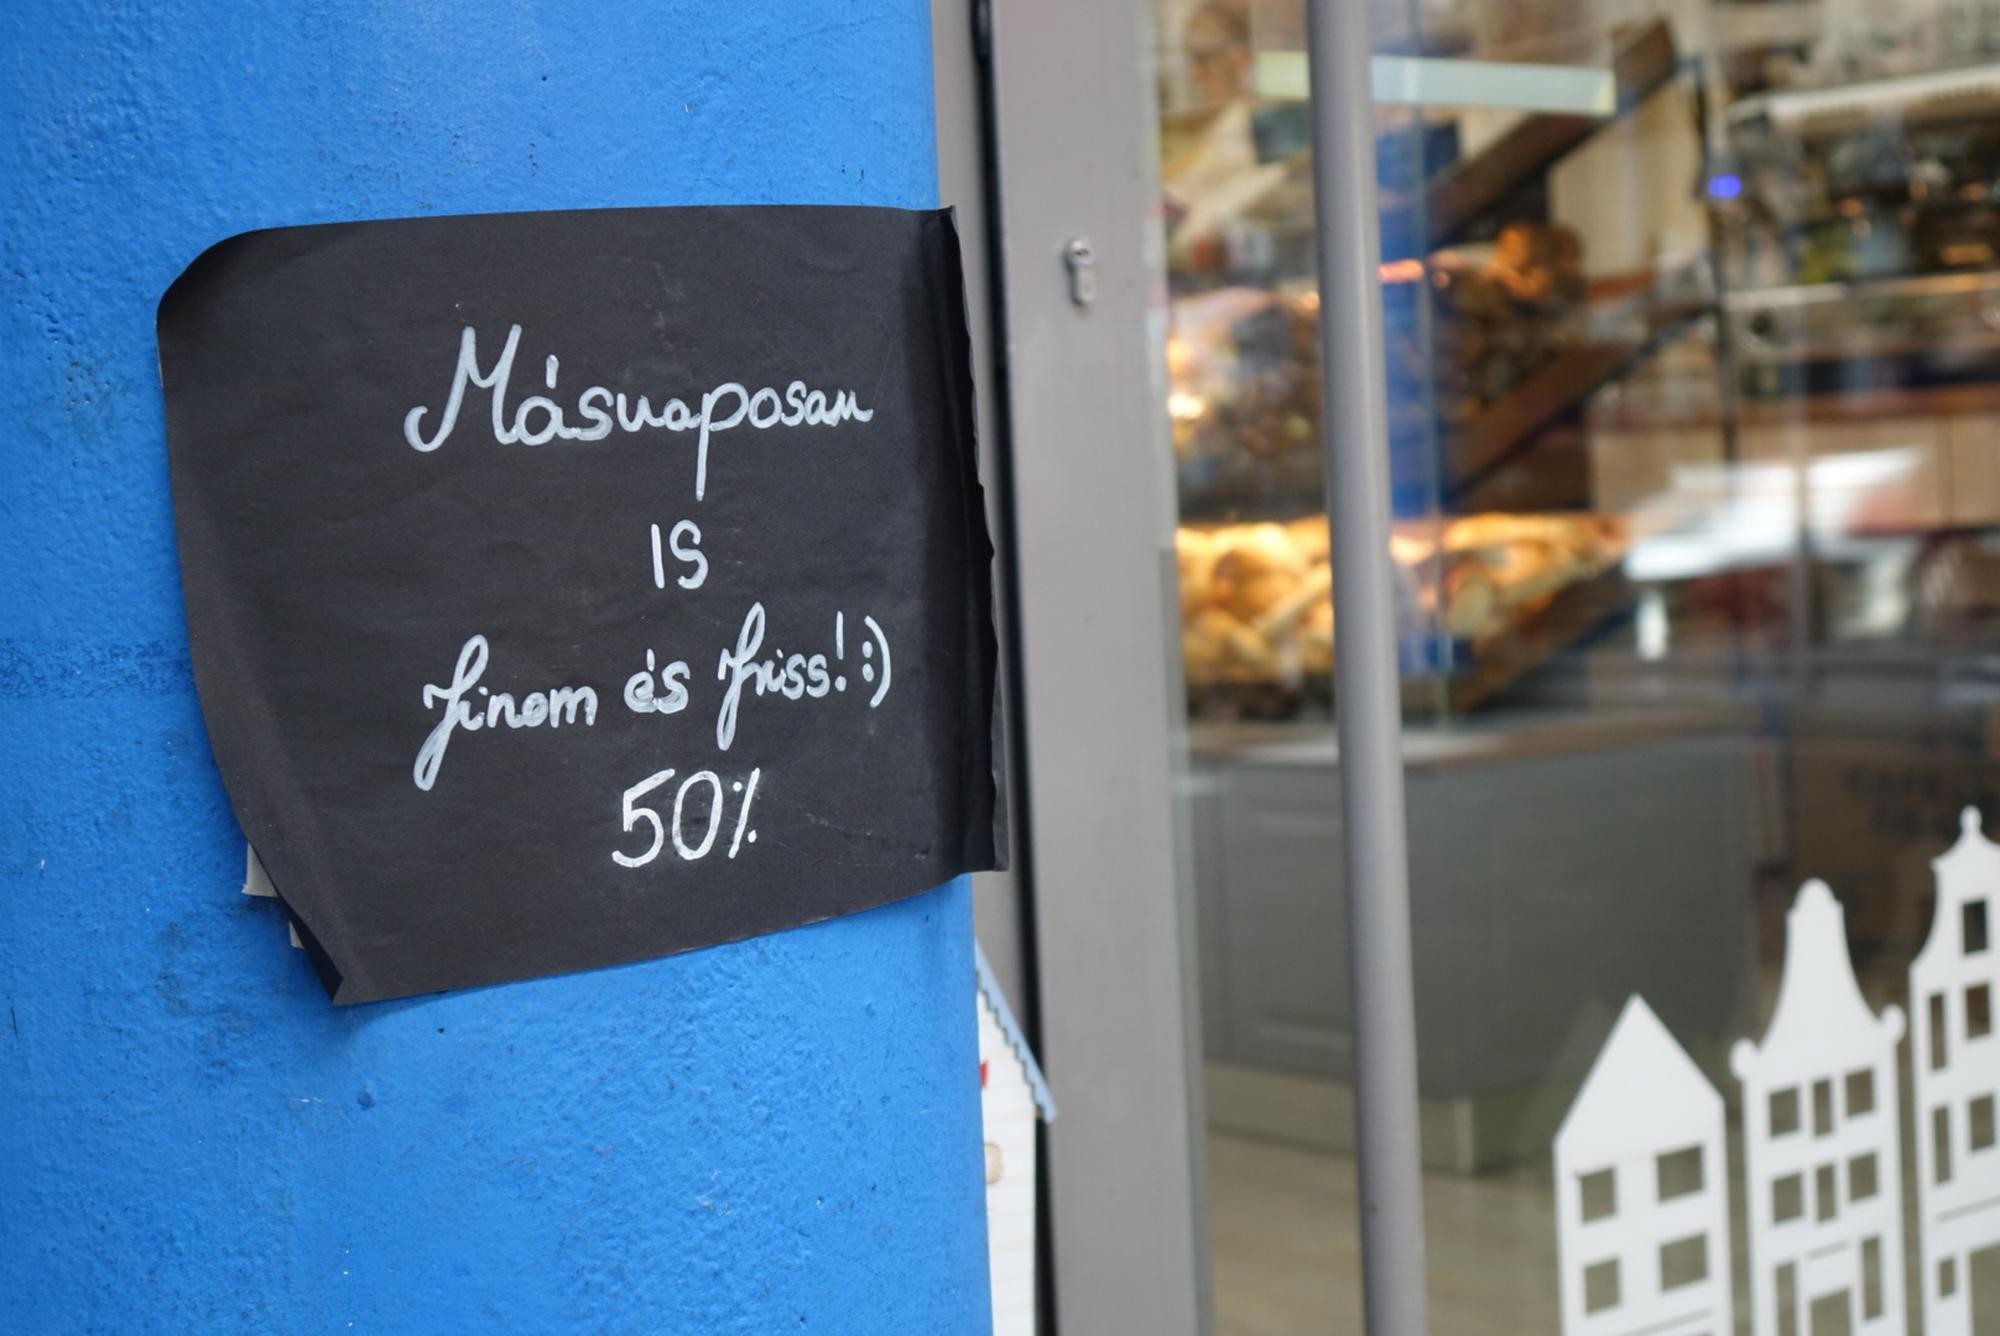 Másnaposan
is
finom és friss! :)
50%